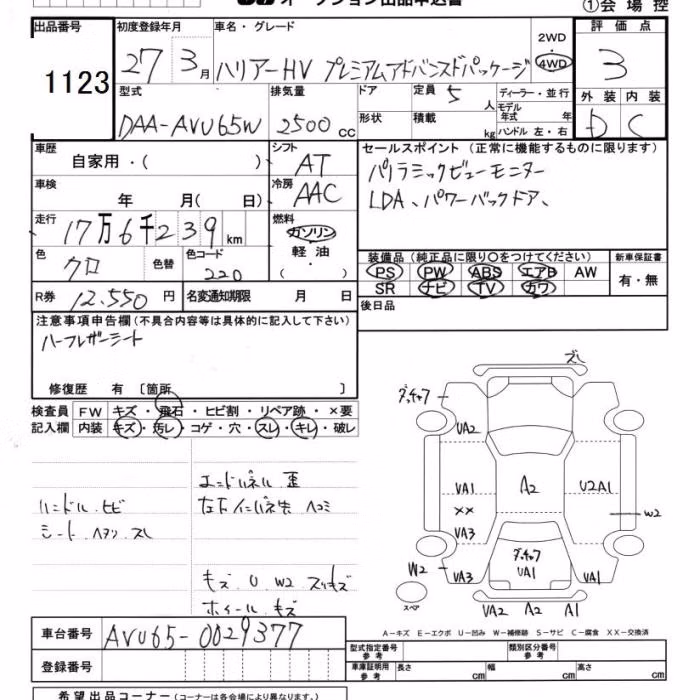 オークション出品申込書
①会場控
出品番号 初度登録年月 車名・グレード 2WD・4WD 評価点
1123 27 3月 ハリアーHV プレミアムアドバンスドパッケージ 3
型式 排気量 ドア 定員 5人 ディーラー・並行 外装 内装
DAA-AVU65W 2500cc 形状 積載 kg モデル年式 年 ハンドル 左・右 D C
車歴 自家用・( ) シフト AT セールスポイント (正常に機能するものに限ります)
車検 年 月(日) 冷房 AAC パノラミックビューモニター
LDA、パワーバックドア、
走行 17万6千239km 燃料 ガソリン 軽油・( )
色 クロ 色替 色コード 220
装備品 (純正品に限り〇をつけてください) 新車保証書
PS PW ABS エアB AW 有・無
SR ナビ TV カワ
R券 12,550円 名変通知期限 月 日 後日品
注意事項申告欄(不具合内容等は具体的に記入して下さい)
ハーフレザーシート
修復歴 有 〔箇所 〕
検査員 FW キズ・飛石・ヒビ割・リペア跡・×要
記入欄 内装 キズ・汚レ・コゲ・穴・スレ・キレ・破レ
エンドパネル 歪
ハンドル ヒビ
シート スレ
キズ U W2
ホイール キズ
スレ
UA2
UA1 A2 U2A1
XX W2
UA3
UA1
W2 UA3 UA1
スペア UA2 A2 A1
A-キズ E-エクボ U-凹み W-補修跡 S-サビ C-腐食 XX-交換済
車台番号 AVU65-0029377
型式指定番号 参考 類別区分番号 参考
登録番号
車庫証明用 参考 長さ cm 幅 cm 高さ cm
希望出品コーナー (コーナーは各会場により異なります。)